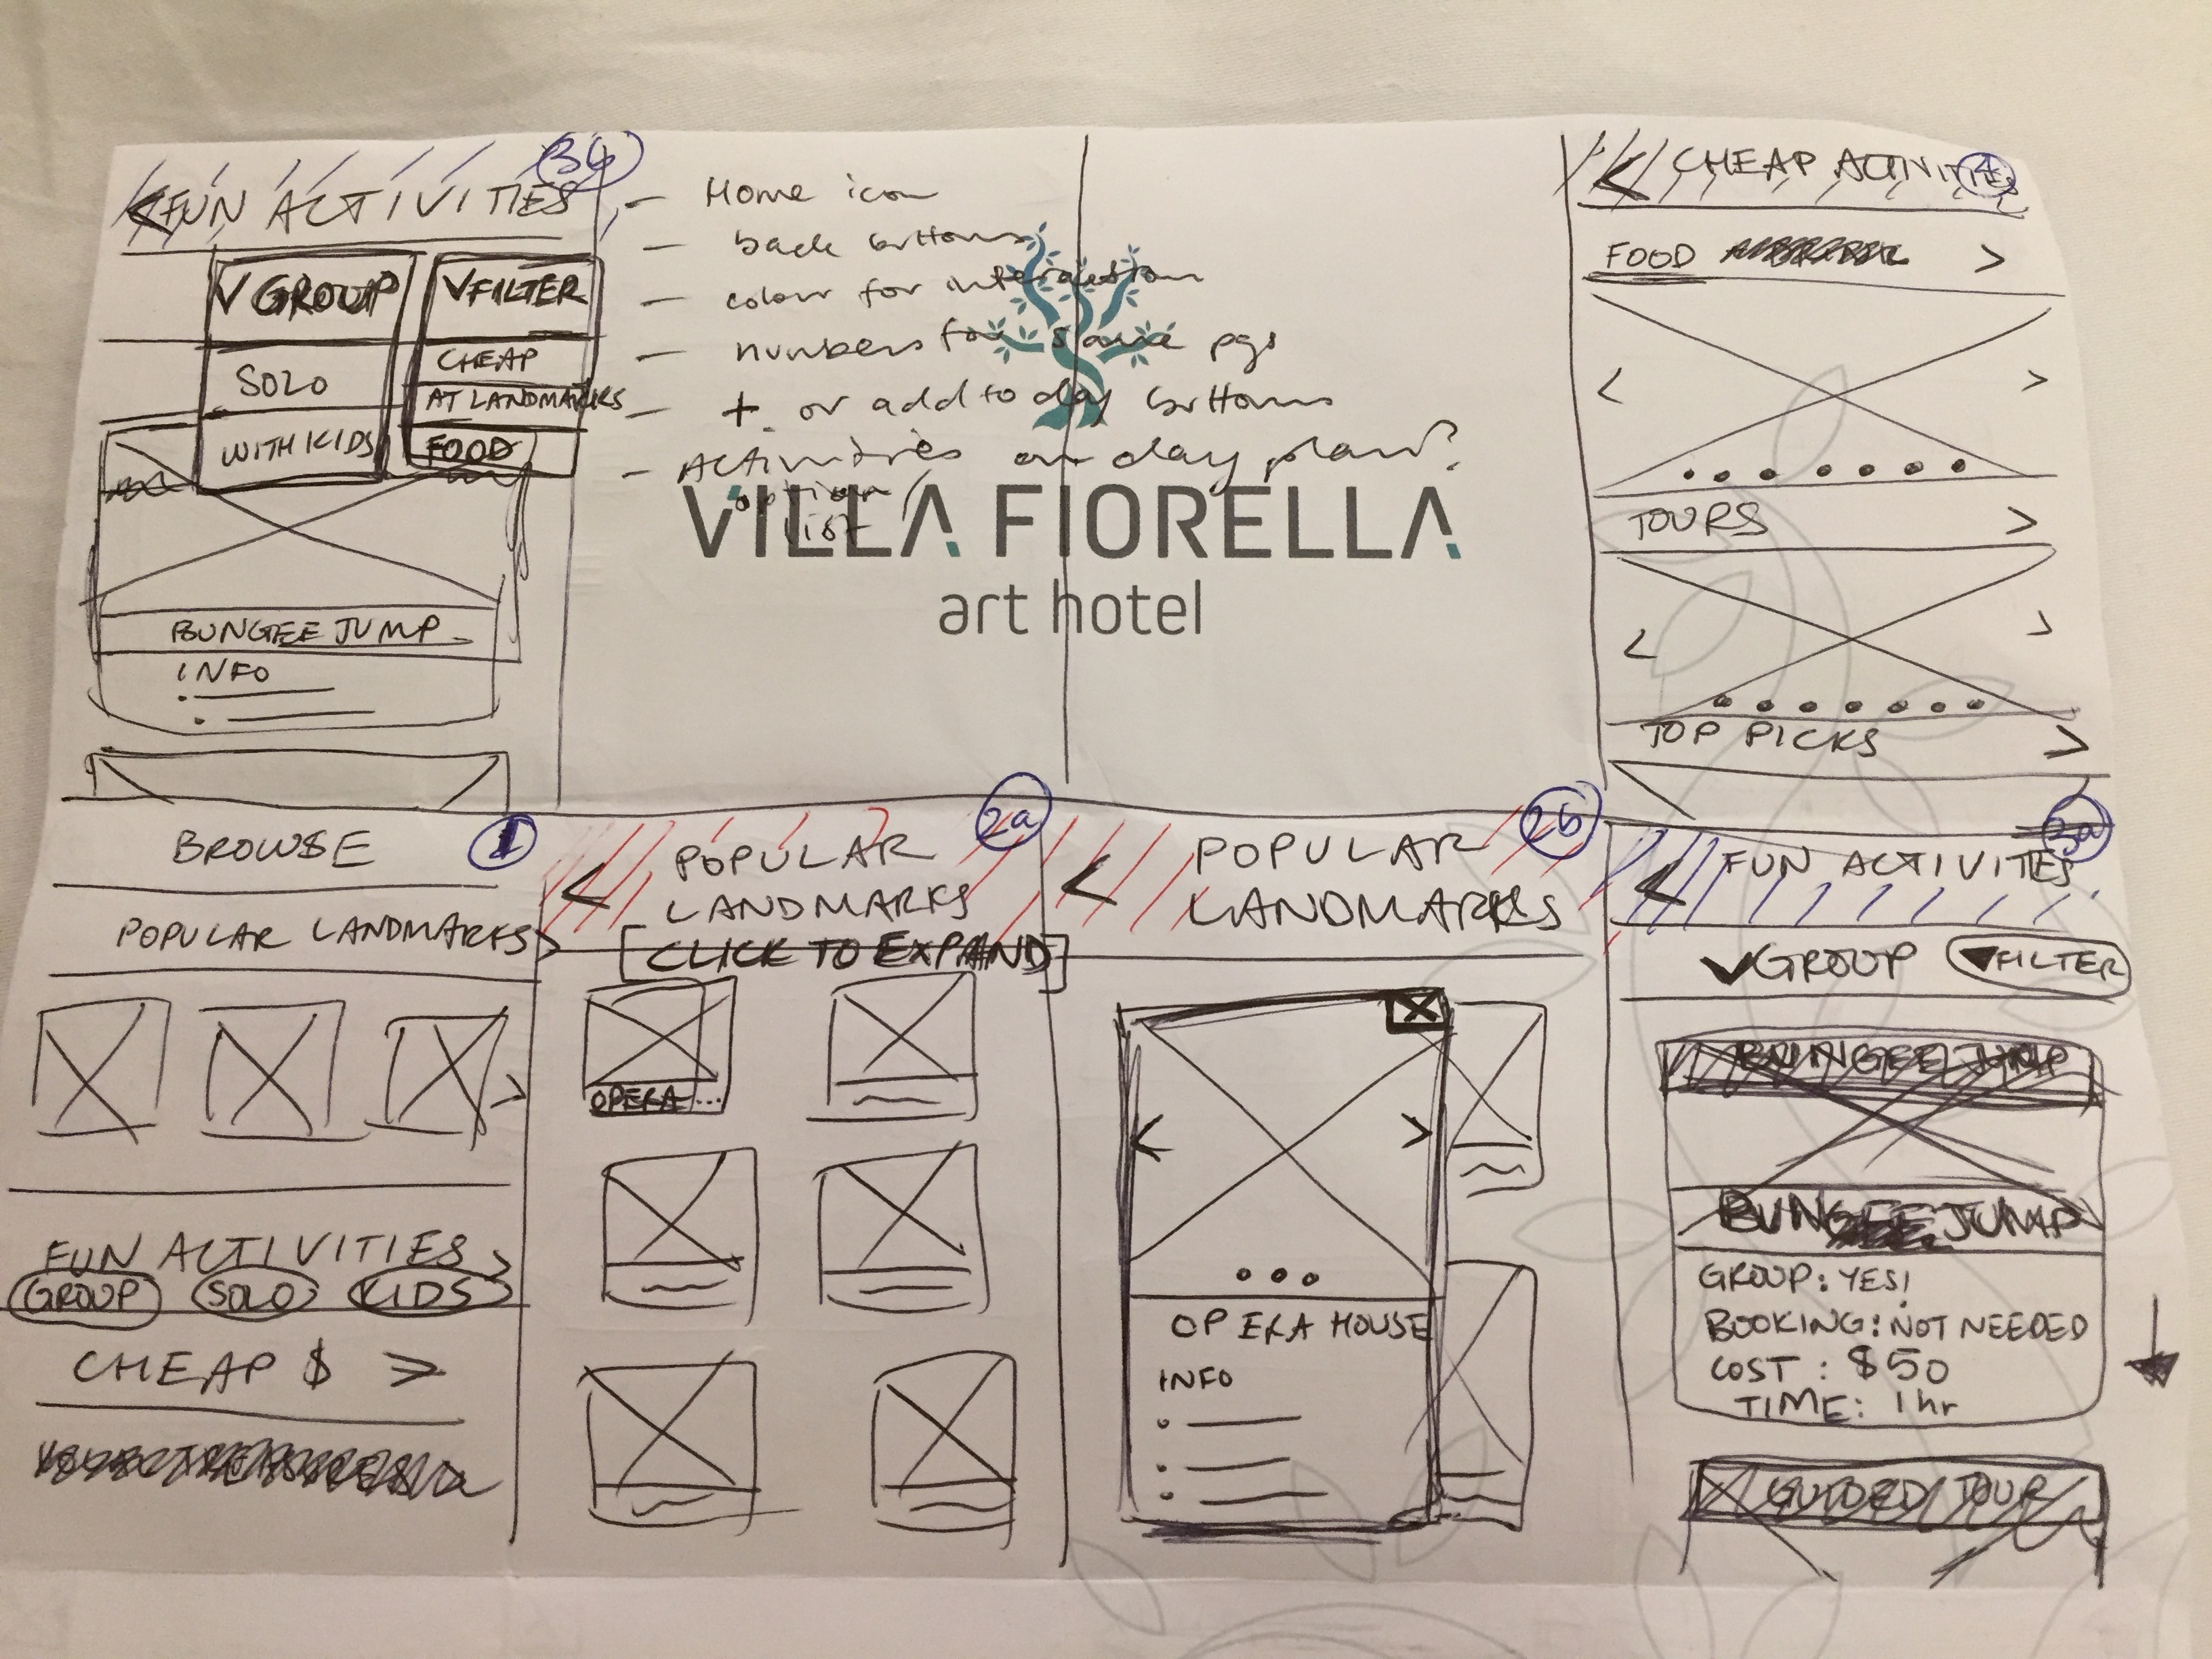 FUN ACTIVITIES
3b
V GROUP
SOLO
WITH KIDS
V FILTER
CHEAP
AT LANDMARKS
FOOD
BUNGEE JUMP
INFO
- Home icon
- back buttons
- colour for interaction
- numbers for same pgs
- + or add to day buttons
- Activities or day plan?
option
VILLA FIORELLA
art hotel
< CHEAP ACTIVITIES
4
FOOD >
< >
TOURS >
< >
TOP PICKS >
BROWSE
1
POPULAR LANDMARKS >
FUN ACTIVITIES >
GROUP SOLO KIDS
CHEAP $ >
< POPULAR
LANDMARKS
2a
[CLICK TO EXPAND]
OPERA...
< POPULAR
LANDMARKS
2b
X
< >
OPERA HOUSE
INFO
< FUN ACTIVITIES
3a
GROUP
FILTER
BUNGEE JUMP
BUNGEE JUMP
GROUP: YES!
BOOKING: NOT NEEDED
COST: $50
TIME: 1 hr
GUIDED TOUR